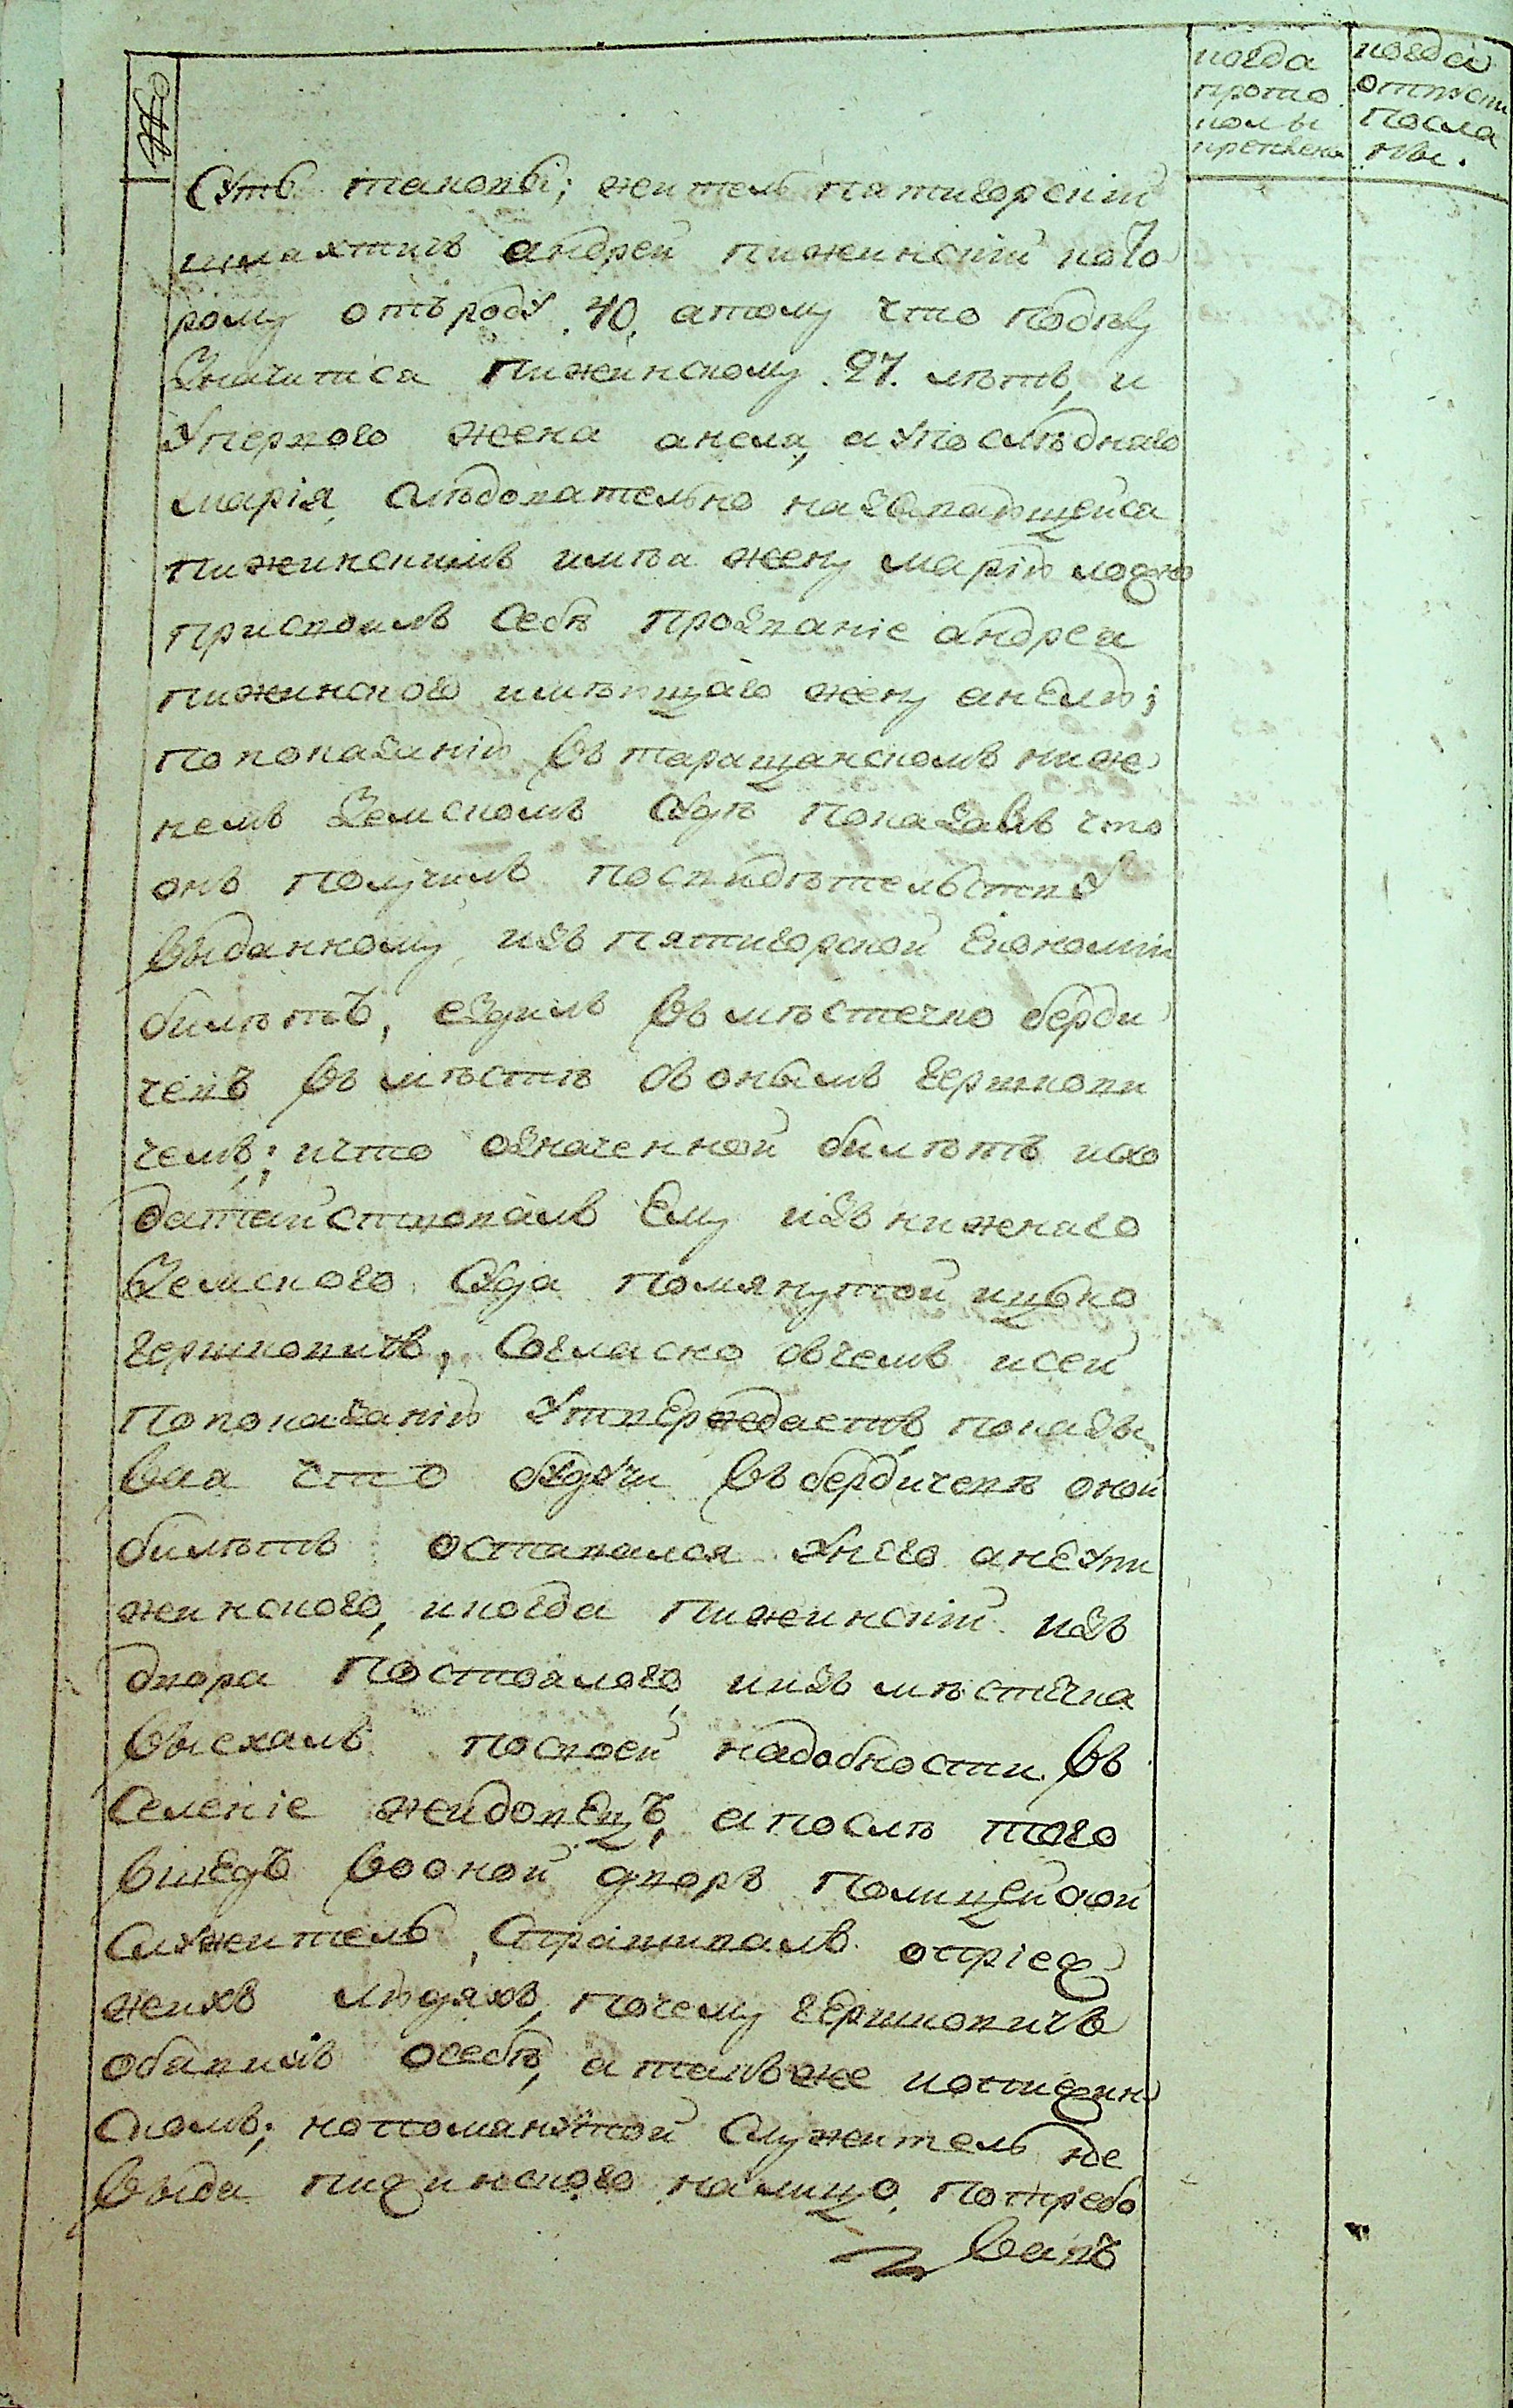 №
когда
прото
колы
пречвены
когда
отпуски
посла
ны.
Суть таковы; житель пятигорскій
шляхтичь андрей пиженскій кото
рому отъ роду 40. атому что подѣлу
Значитса Пиженскому. 27. лѣтъ, и
Уперваго жена анеля, аупослѣднаго
марія, слѣдовательно назвавшейса
пиженскимъ имѣя жену марію ложно
присвоилъ себѣ прозваніе андрея
пиженского имѣющаго жену анелю;
по показанію въ таращанскомъ ниж
немъ Земскомъ судѣ показалъ что
онъ получилъ посвидѣтельству
выданному, изъ пятигорской економіи
билѣтъ, ездилъ въ мѣстечко берди
чевъ въ мѣстѣ съ онымъ гершкови
чемъ; ичто означенной билѣтъ исхо
датайствовалъ Ему изъ нижнаго
Земского Суда помянутой ицько
гершковичь, Согласно очемъ исей
по показанію Утверждаетъ, показы
вая что будучи въ бердичевѣ оной
билѣтъ оставался унего анеупи
женского, икогда пиженскій изъ
двора постоялого, иизъ мѣстечка
выехалъ посвоей надобности въ
Селеніе жидовецъ, апослѣ того
вшедъ вооной дворъ полицейской
Служитель, Спрашивалъ опріез
жихъ людяхъ, почему гершковичь
обявилъ осебѣ, атакъже иопижин
скомъ; нопомянутой служитель не
выда пиженского налицо, потребо
валъ